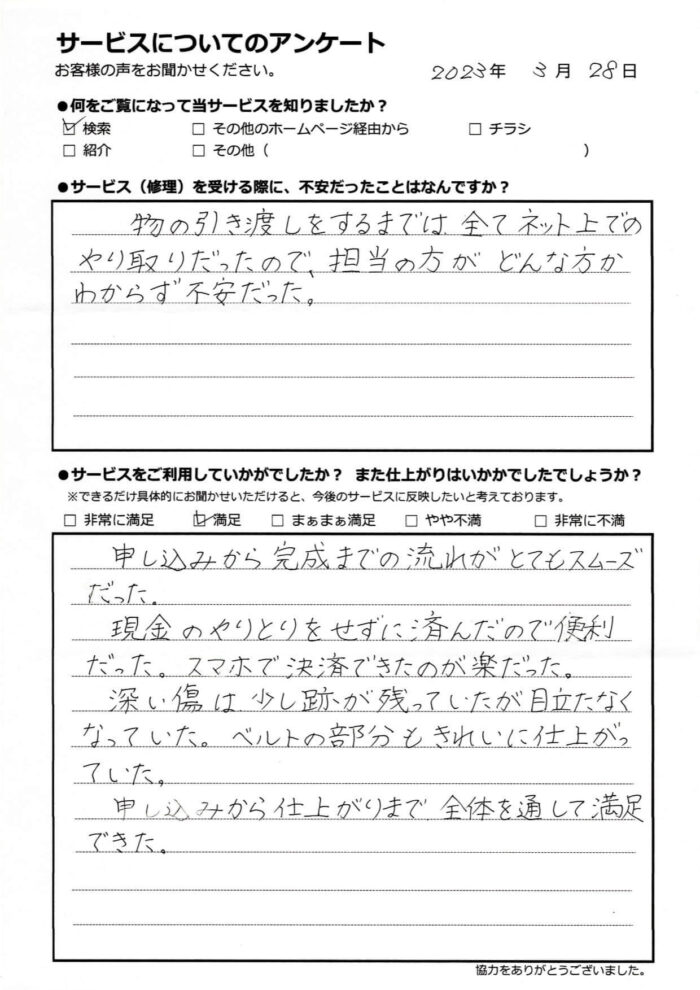 サービスについてのアンケート
お客様の声をお聞かせください。 2023年 3月 28日
●何をご覧になって当サービスを知りましたか？
☑ 検索 □ その他のホームページ経由から □ チラシ
□ 紹介 □ その他（ ）
●サービス（修理）を受ける際に、不安だったことはなんですか？
物の引き渡しをするまでは全てネット上での
やり取りだったので、担当の方がどんな方か
わからず不安だった。
●サービスをご利用していかがでしたか？ また仕上がりはいかかでしたでしょうか？
※できるだけ具体的にお聞かせいただけると、今後のサービスに反映したいと考えております。
□ 非常に満足 ☑ 満足 □ まぁまぁ満足 □ やや不満 □ 非常に不満
申し込みから完成までの流れがとてもスムーズ
だった。
現金のやりとりをせずに済んだので便利
だった。スマホで決済できたのが楽だった。
深い傷は少し跡が残っていたが目立たなく
なっていた。ベルトの部分もきれいに仕上がっ
ていた。
申し込みから仕上がりまで全体を通して満足
できた。
協力をありがとうございました。